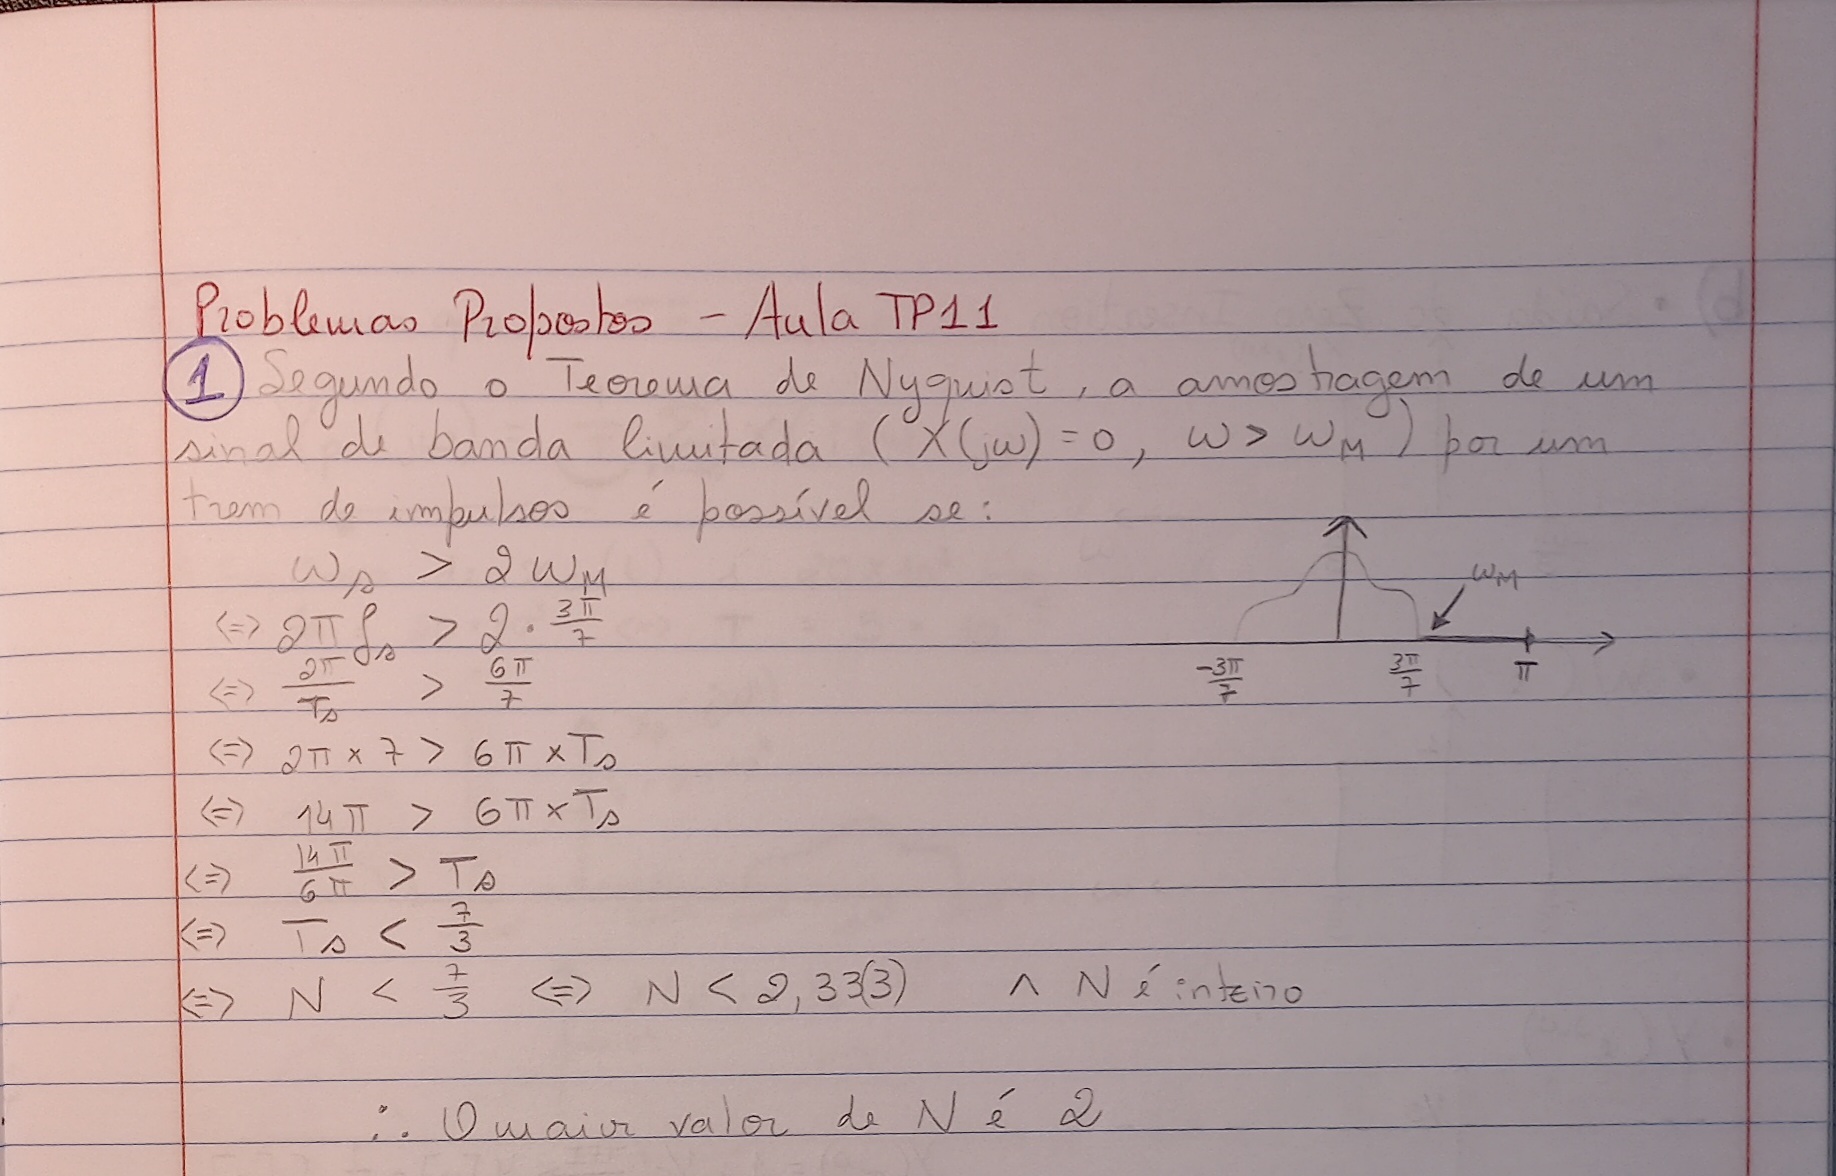 Problemas Propostos - Aula TP11
1 Segundo o Teorema de Nyquist, a amostragem de um
sinal de banda limitada (X(jω)=0, ω > ωM) por um
trem de impulsos é possível se:
ωs > 2ωM
<=> 2πfs > 2·3π/7
<=> 2π/Ts > 6π/7
<=> 2π×7 > 6π×Ts
<=> 14π > 6π×Ts
<=> 14π/6π > Ts
<=> Ts < 7/3
<=> N < 7/3 <=> N < 2,33(3) ∧ N é inteiro
∴ O maior valor de N é 2
ωM
-3π/7 3π/7 π